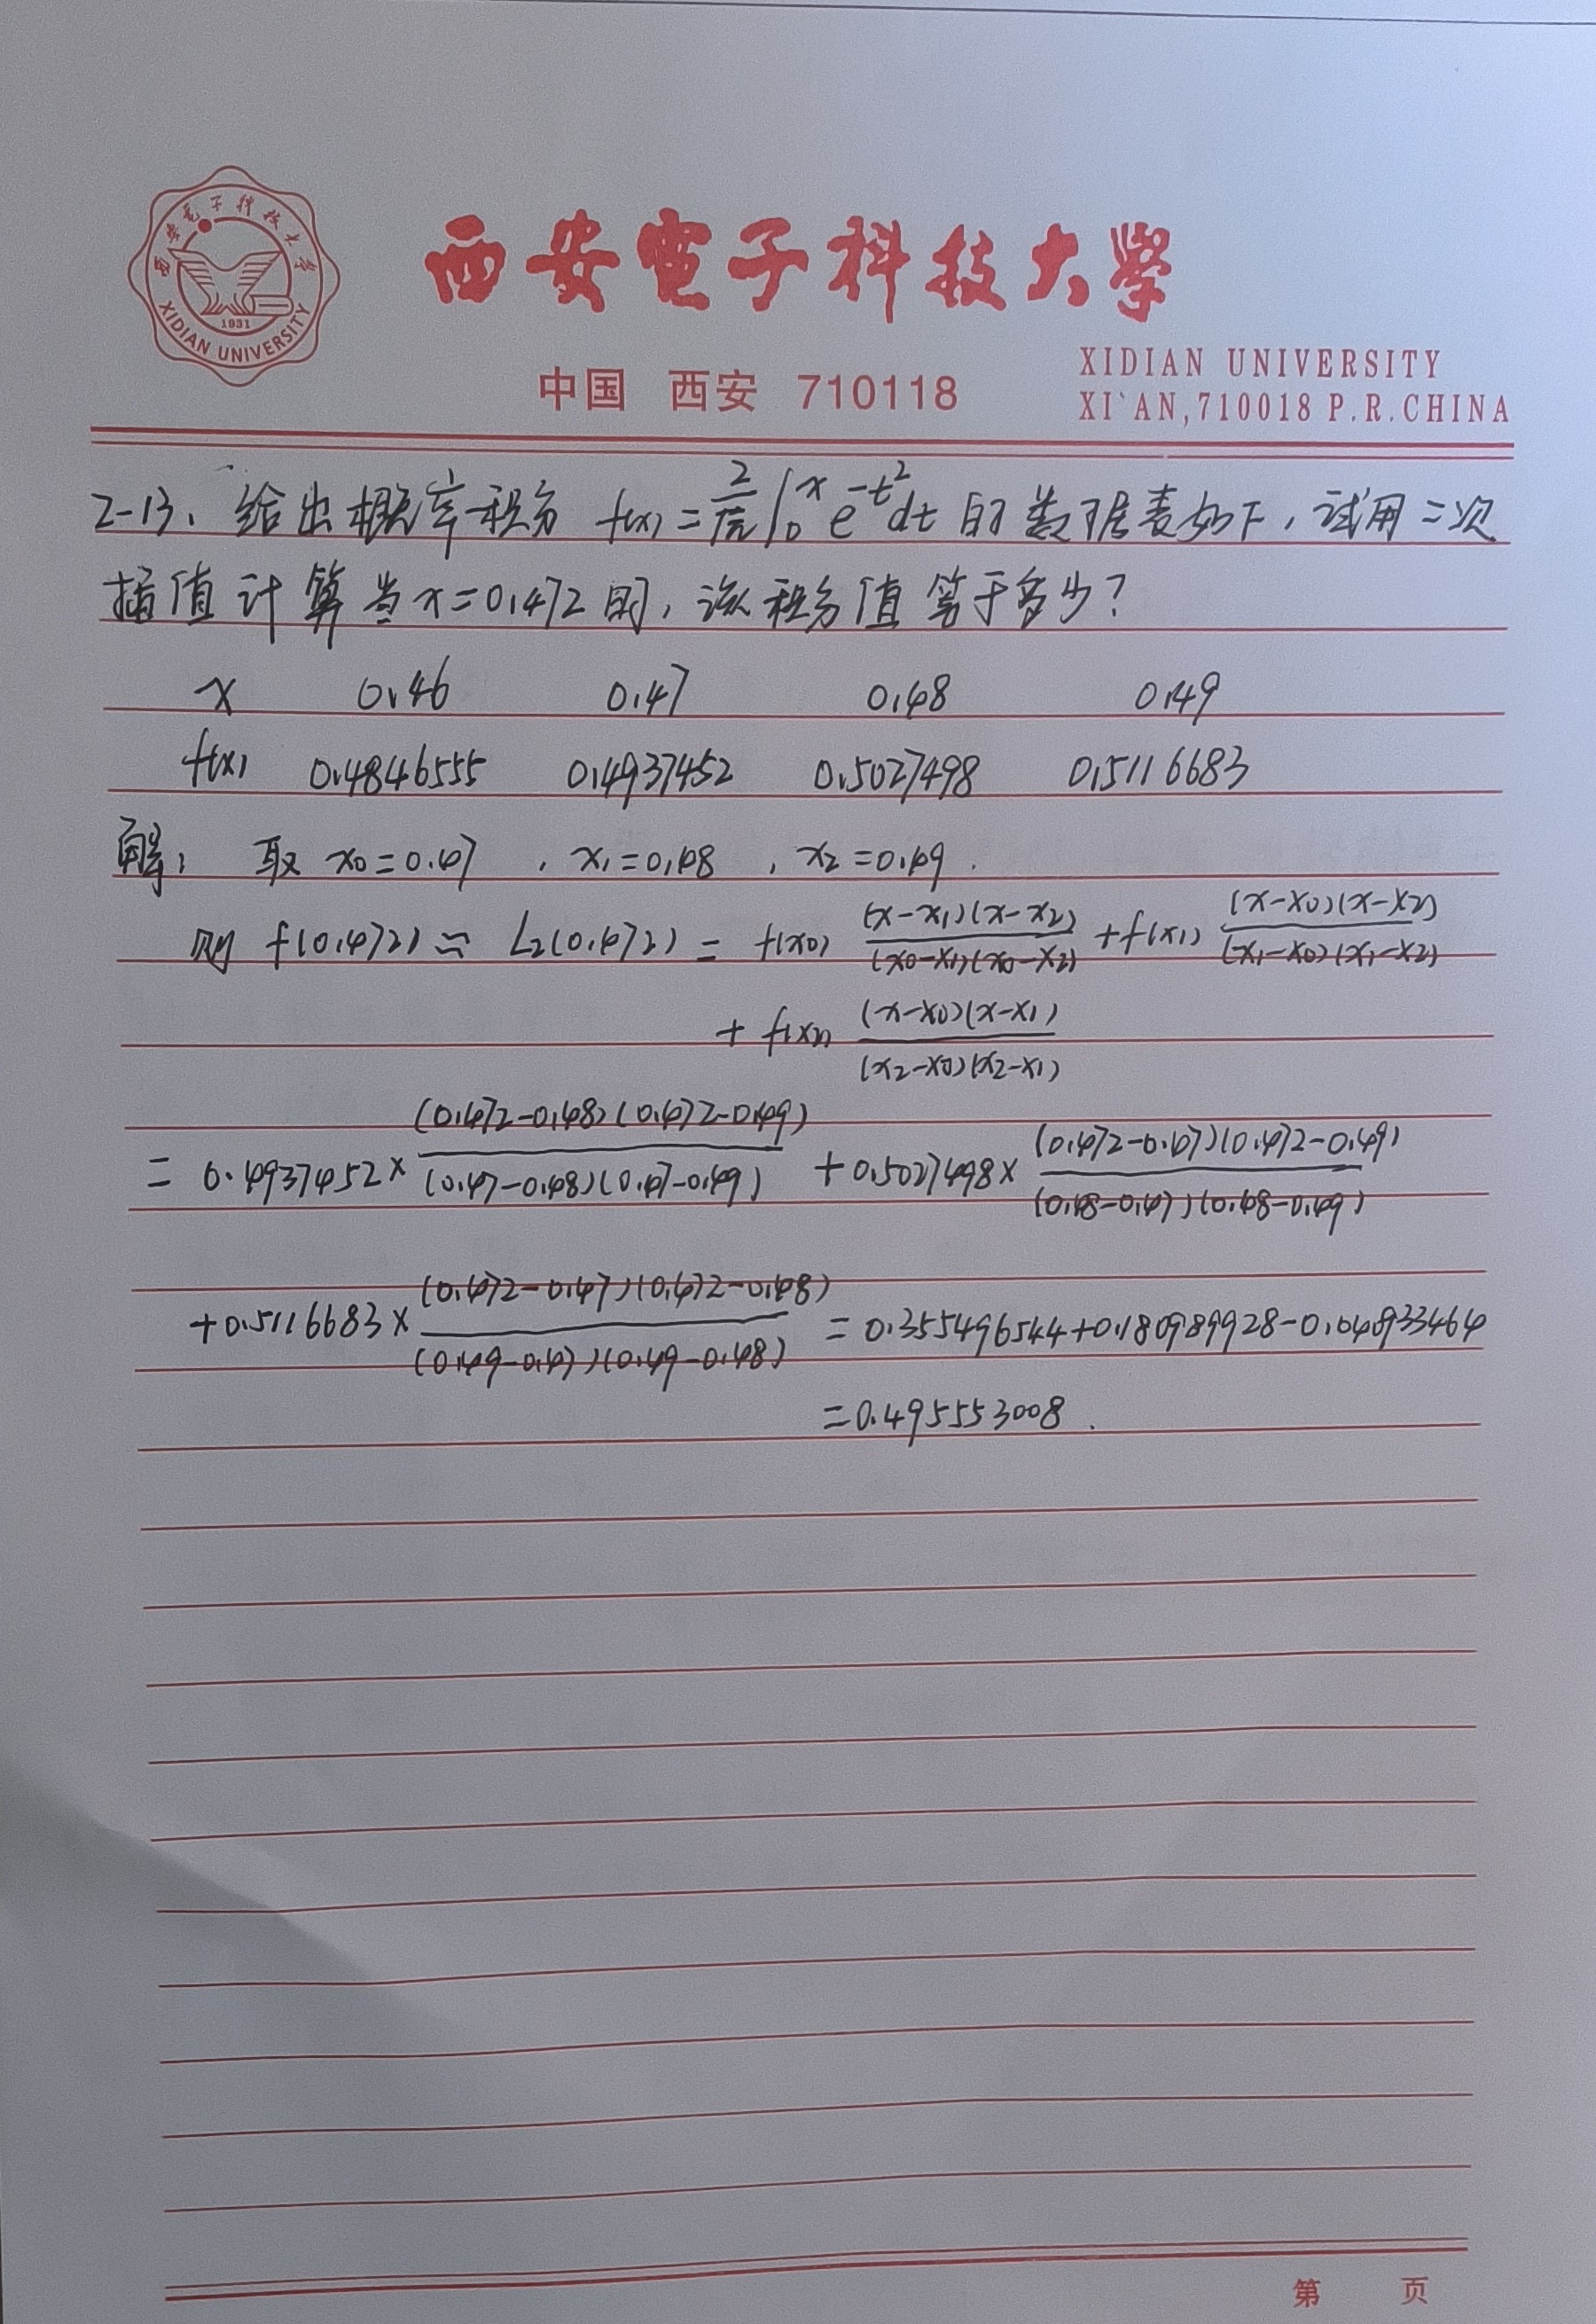 西安电子科技大学
XIDIAN UNIVERSITY
1931
西安電子科技大學
中国 西安 710118
XIDIAN UNIVERSITY
XI`AN,710018 P.R.CHINA
2-13、给出概率积分 f(x)=2/√π ∫₀ˣ e^(-t²)dt 的数据表如下,试用二次
插值计算当x=0.472时,该积分值等于多少?
x 0.46 0.47 0.48 0.49
f(x) 0.4846555 0.4937452 0.5027498 0.5116683
解: 取 x₀=0.47 , x₁=0.48 , x₂=0.49 .
则 f(0.472) ≈ L₂(0.472) = f(x₀) (x-x₁)(x-x₂)/(x₀-x₁)(x₀-x₂) + f(x₁) (x-x₀)(x-x₂)/(x₁-x₀)(x₁-x₂)
+ f(x₂) (x-x₀)(x-x₁)/(x₂-x₀)(x₂-x₁)
= 0.4937452× (0.472-0.48)(0.472-0.49)/(0.47-0.48)(0.47-0.49) +0.5027498× (0.472-0.47)(0.472-0.49)/(0.48-0.47)(0.48-0.49)
+0.5116683× (0.472-0.47)(0.472-0.48)/(0.49-0.47)(0.49-0.48) =0.355496544+0.180989928-0.040933464
=0.495553008 .
第 页